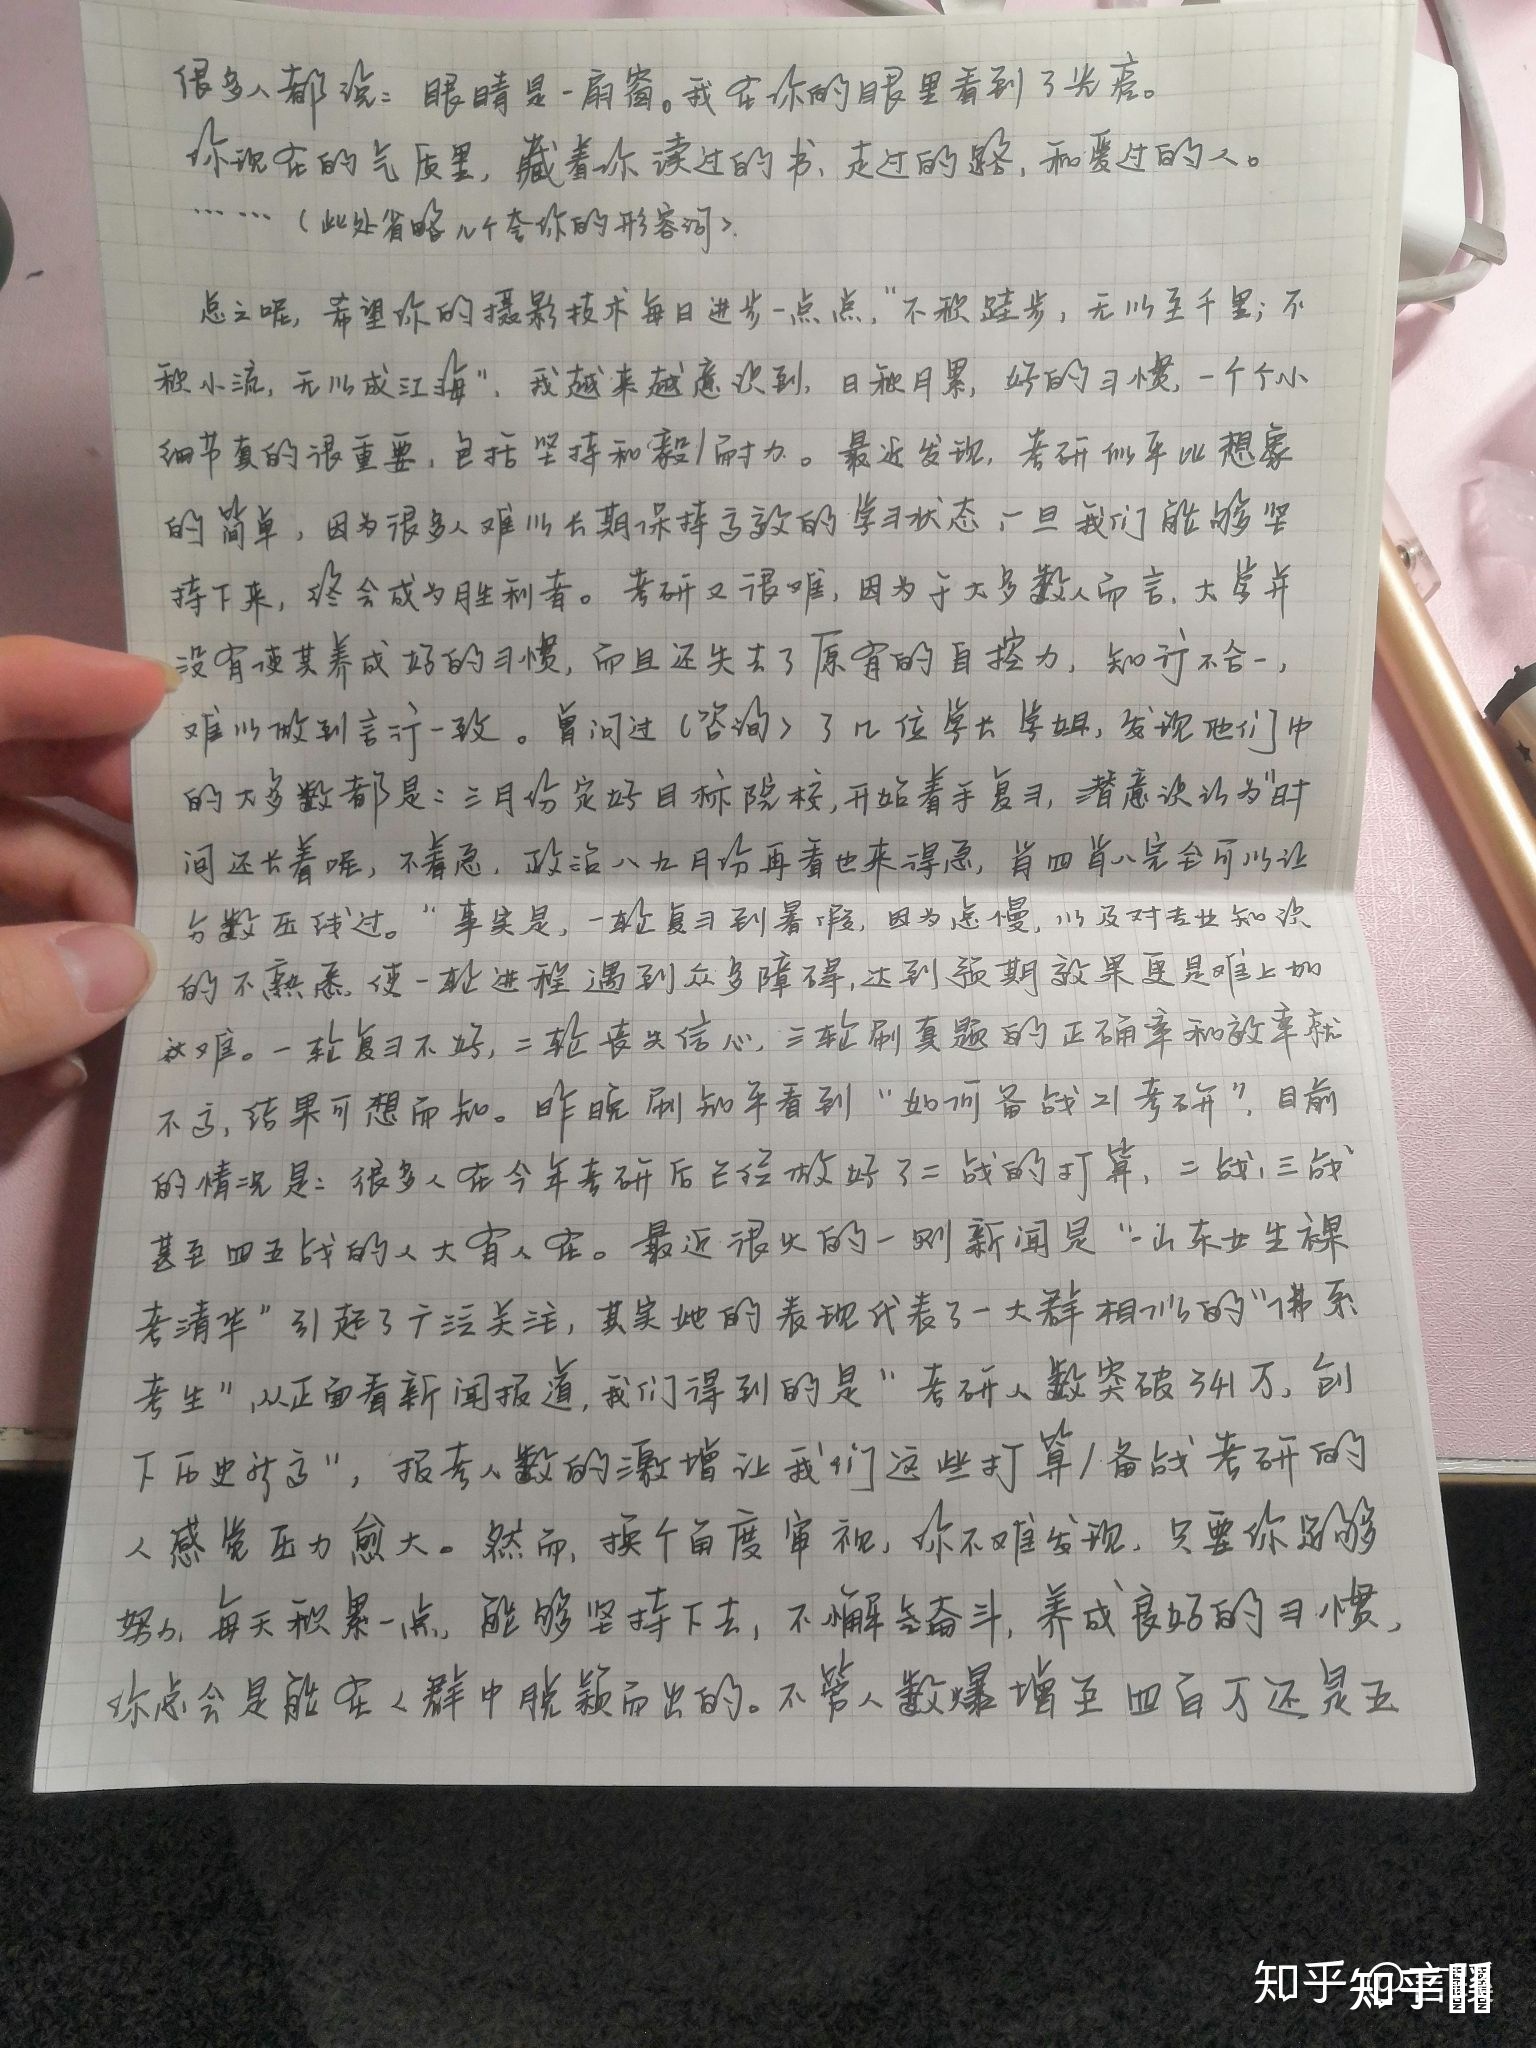 很多人都说：眼睛是一扇窗。我在你的眼里看到了光亮。
你现在的气质里，藏着你读过的书、走过的路，和爱过的人。
……（此处省略几个夸你的形容词）.
总之呢，希望你的摄影技术每日进步一点点，“不积跬步，无以至千里；不
积小流，无以成江海”，我越来越意识到，日积月累，好的习惯，一个个小
细节真的很重要，包括坚持和毅/耐力。最近发现，考研似乎比想象
的简单，因为很多人难以长期保持高效的学习状态，一旦我们能够坚
持下来，终会成为胜利者。考研又很难，因为于大多数人而言，大学并
没有使其养成好的习惯，而且还失去了原有的自控力，知行不合一，
难以做到言行一致。曾问过（咨询）了几位学长学姐，发现他们中
的大多数都是：三月份定好目标院校，开始着手复习，潜意识认为“时
间还长着呢，不着急，政治八九月份再看也来得急，肖四肖八完全可以让
分数压线过。”事实是，一轮复习到暑假，因为怠慢，以及对专业知识
的不熟悉，使一轮进程遇到众多障碍，达到预期效果更是难上加
难。一轮复习不好，二轮丧失信心，三轮刷真题的正确率和效率就
不高，结果可想而知。昨晚刷知乎看到“如何备战21考研”，目前
的情况是：很多人在今年考研后已经做好了二战的打算，二战、三战
甚至四五战的人大有人在。最近很火的一则新闻是“一山东女生裸
考清华”引起了广泛关注，其实她的表现代表了一大群相似的“佛系
考生”，从正面看新闻报道，我们得到的是“考研人数突破341万，创
下历史新高”，报考人数的激增让我们这些打算/备战考研的
人感觉压力愈大。然而，换个角度审视，你不难发现，只要你足够
努力，每天积累一点，能够坚持下去，不懈奋斗，养成良好的习惯，
你总会是能在人群中脱颖而出的。不管人数爆增至四百万还是五
知乎
知乎